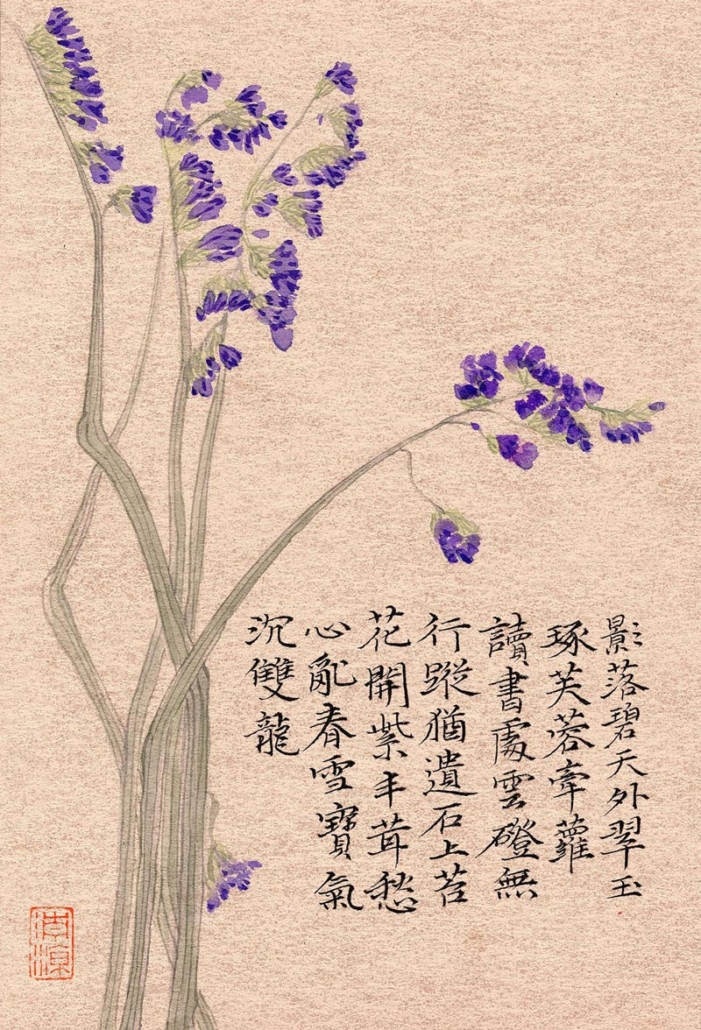 影落碧天外翠玉
琢芙蓉牽蘿
讀書處雲磴無
行蹤猶遺石上苔
花開紫丰茸愁
心亂春雪寶氣
沉雙龍